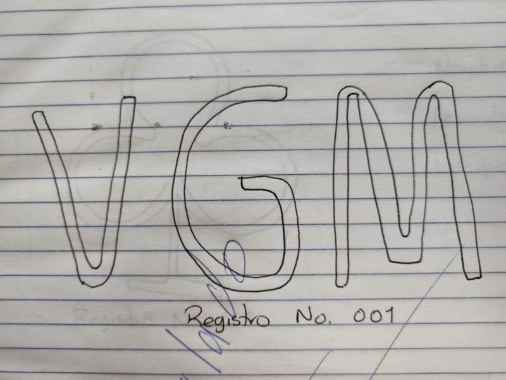 VGM
Registro No. 001